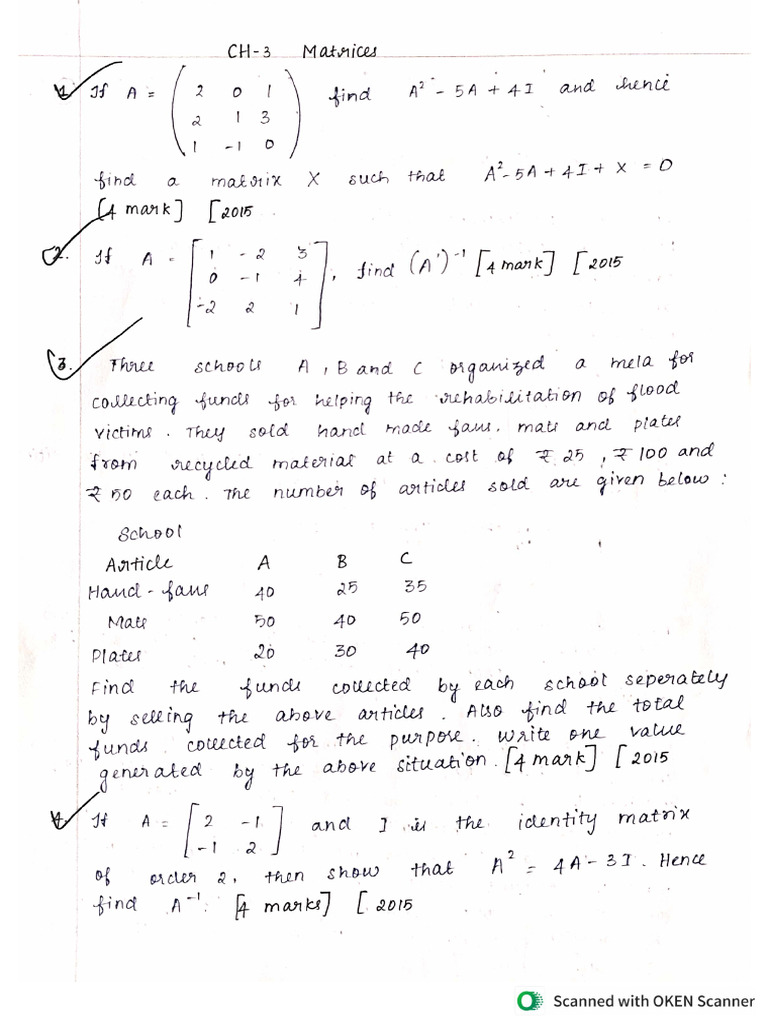 CH-3 Matrices
1. If A = ( 2 0 1 find A² - 5A + 4I and hence
2 1 3
1 -1 0 )
find a matrix X such that A² - 5A + 4I + X = 0
[4 mark] [2015
2. If A = [ 1 -2 3
0 -1 4 , find (A')⁻¹ [4 mark] [2015
-2 2 1 ]
3. Three schools A, B and C organized a mela for
collecting funds for helping the rehabilitation of flood
victims. They sold hand made fans, mats and plates
from recycled material at a cost of ₹ 25, ₹ 100 and
₹ 50 each. The number of articles sold are given below:
School
Article A B C
Hand-fans 40 25 35
Mats 50 40 50
Plates 20 30 40
Find the funds collected by each school seperately
by selling the above articles. Also find the total
funds collected for the purpose. Write one value
generated by the above situation. [4 mark] [2015
4. If A = [ 2 -1 and I is the identity matrix
-1 2 ]
of order 2, then show that A² = 4A - 3I. Hence
find A⁻¹. [4 marks] [2015
Scanned with OKEN Scanner